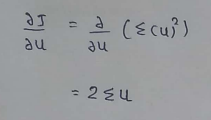 ∂J/∂u = ∂/∂u (Σ(u)²)
= 2Σu